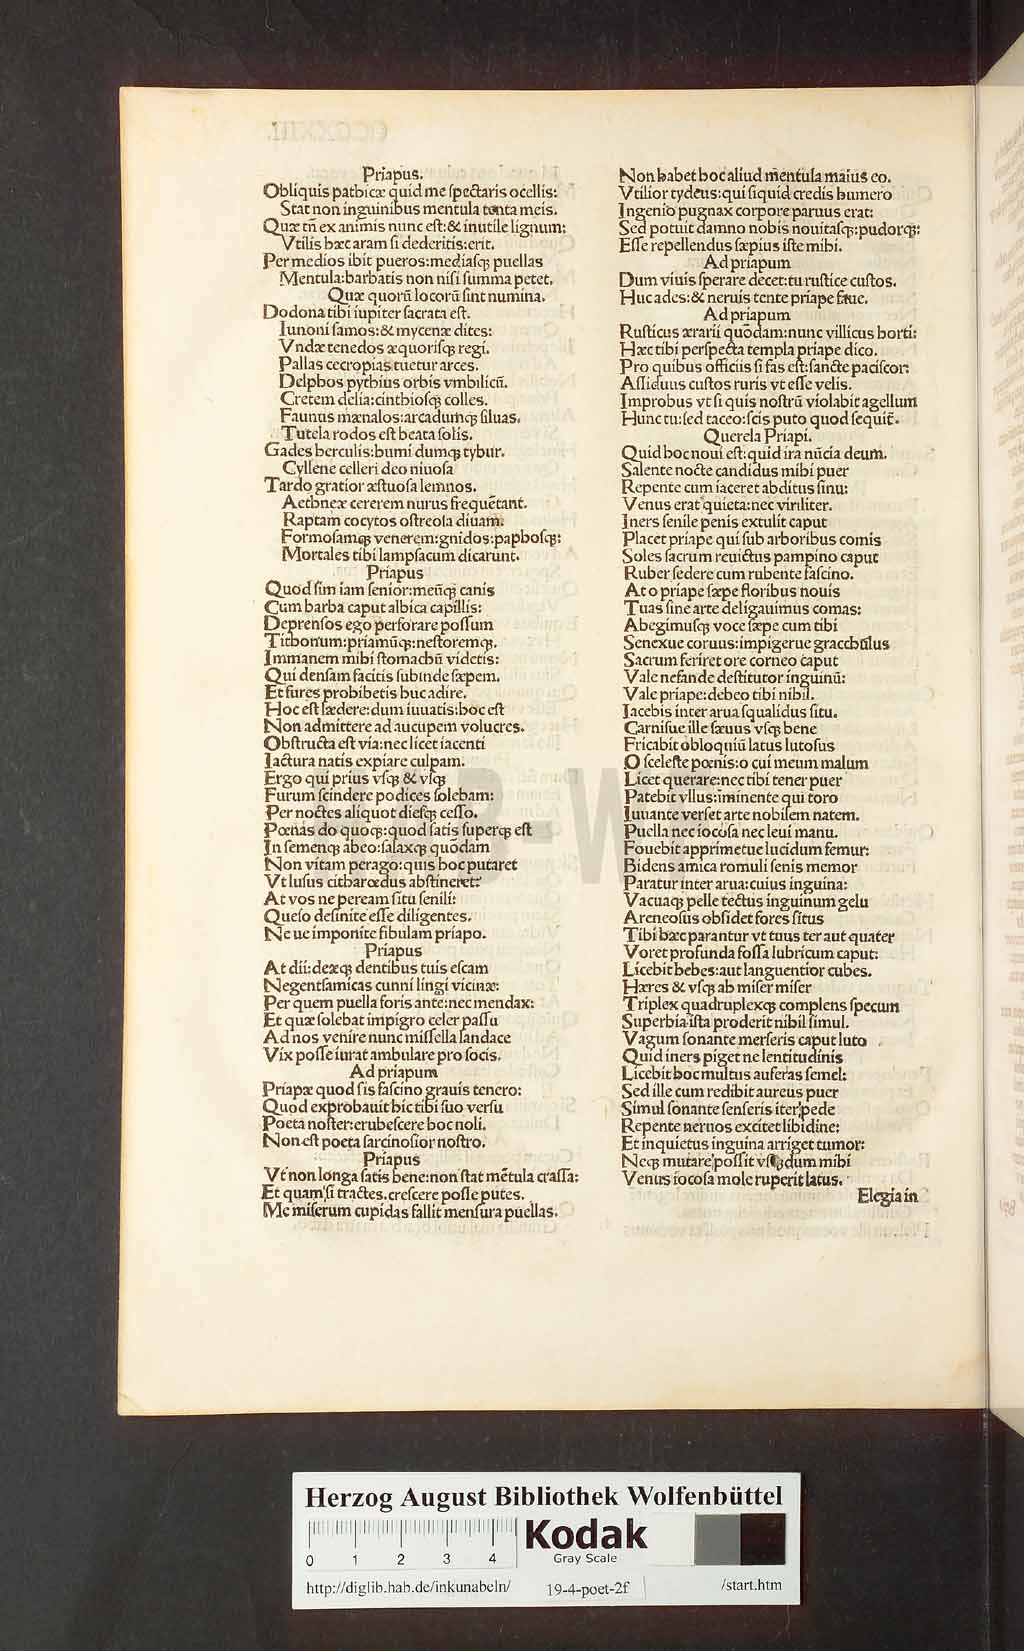 Priapus.
Obliquis pathicæ quid me spectaris ocellis:
Stat non inguinibus mentula tenta meis.
Quæ tñ ex animis nunc est:& inutile lignum:
Vtilis hæc aram si dederitis:erit.
Per medios ibit pueros:mediasqȝ puellas
Mentula:barbatis non nisi summa petet.
Quæ quorũ locorũ sint numina.
Dodona tibi iupiter sacrata est.
Iunoni samos:& mycenæ dites:
Vndæ tenedos æquorisqȝ regi.
Pallas cecropias tuetur arces.
Delphos pythius orbis vmbilicũ.
Cretem delia:cinthiosqȝ colles.
Faunus mænalos:arcadumqȝ siluas.
Tutela rodos est beata solis.
Gades herculis:humi dumqȝ tybur.
Cyllene celleri deo niuosa
Tardo gratior æstuosa lemnos.
Aethneæ cererem nurus frequẽtant.
Raptam cocytos ostreola diuam:
Formosamqȝ venerem:gnidos:paphosqȝ:
Mortales tibi lampsacum dicarunt.
Priapus
Quod sim iam senior:meũqȝ canis
Cum barba caput albica capillis:
Deprensos ego perforare possum
Tithonum:priamũqȝ:nestoremqȝ.
Immanem mihi stomachũ videtis:
Qui densam facitis subinde sæpem.
Et fures prohibetis huc adire.
Hoc est lædere:dum iuuatis:hoc est
Non admittere ad aucupem volucres.
Obstructa est via:nec licet iacenti
Iactura natis expiare culpam.
Ergo qui prius vsqȝ & vsqȝ
Furum scindere podices solebam:
Per noctes aliquot diesqȝ cesso.
Pœnas do quoqȝ:quod satis superqȝ est
In semenqȝ abeo:salaxqȝ quondam
Non vitam perago:quis hoc putaret
Vt lusus citharœdus abstineret:
At vos ne peream situ senili:
Queso desinite esse diligentes.
Ne ue imponite fibulam priapo.
Priapus
At dii:deæqȝ dentibus tuis escam
Negent:amicas cunni lingi vicinæ:
Per quem puella foris ante:nec mendax:
Et quæ solebat impigro celer passu
Ad nos venire nunc missella landace
Vix posse iurat ambulare pro socis.
Ad priapum
Priapæ quod sis fascino grauis tenero:
Quod exprobauit hic tibi suo versu
Poeta noster:erubescere hoc noli.
Non est poeta sarcinosior nostro.
Priapus
Vt non longa satis bene:non stat mẽtula crassa:
Et quam si tractes.crescere posse putes.
Me miserum cupidas fallit mensura puellas.
Non habet hoc aliud mentula maius eo.
Vtilior tydeus:qui siquid credis humero
Ingenio pugnax corpore paruus erat:
Sed potuit damno nobis nouitasqȝ:pudorqȝ:
Esse repellendus sæpius iste mihi.
Ad priapum
Dum viuis sperare decet:tu rustice custos.
Huc ades:& neruis tente priape faue.
Ad priapum
Rusticus ærarii quõdam:nunc villicus horti:
Hæc tibi perspecta templa priape dico.
Pro quibus officiis si fas est:sancte paciscor:
Assiduus custos ruris vt esse velis.
Improbus vt si quis nostrũ violabit agellum
Hunc tu:sed taceo:scis puto quod sequit̃.
Querela Priapi.
Quid hoc noui est:quid ira nũcia deum.
Salente nocte candidus mihi puer
Repente cum iaceret abditus sinu:
Venus erat quieta:nec viriliter.
Iners senile penis extulit caput
Placet priape qui sub arboribus comis
Soles sacrum reuictus pampino caput
Ruber sedere cum rubente fascino.
At o priape sæpe floribus nouis
Tuas sine arte deligauimus comas:
Abegimusqȝ voce sæpe cum tibi
Senexue coruus:impigerue gracchũlus
Sacrum feriret ore corneo caput
Vale nefande destitutor inguinũ:
Vale priape:debeo tibi nihil.
Iacebis inter arua squalidus situ.
Canisue ille sæuus vsqȝ bene
Fricabit obloquiũ latus lutosus
O sceleste pœnis:o cui meum malum
Licet querare:nec tibi tener puer
Patebit vllus:iminente qui toro
Iuuante verset arte nobilem natem.
Puella nec iocosa nec leui manu.
Fouebit apprimetue lucidum femur:
Bidens amica romuli senis memor
Paratur inter arua:cuius inguina:
Vacuaqȝ pelle tectus inguinum gelu
Areneosus obsidet fores situs
Tibi hæc parantur vt tuus ter aut quater
Voret profunda fossa lubricum caput:
Licebit hebes:aut languentior cubes.
Hæres & vsqȝ ab miser miser
Triplex quadruplexqȝ complens specum
Superbia ista proderit nihil simul.
Vagum sonante merseris caput luto
Quid iners piget ne lentitudinis
Licebit hoc multus auferas semel:
Sed ille cum redibit aureus puer
Simul sonante senseris iter pede
Repente neruos excitet libidine:
Et inquietus inguina arriget tumor:
Neqȝ mutare possit vsqȝ dum mihi
Venus iocosa mole ruperit latus.
Elegia in
HAB-WF
Herzog August Bibliothek Wolfenbüttel
0 1 2 3 4
Kodak
Gray Scale
http://diglib.hab.de/inkunabeln/ 19-4-poet-2f /start.htm